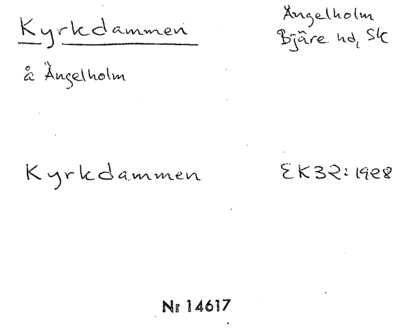 Kyrkdammen
Ängelholm
Bjäre hd, Sk
å Ängelholm
Kyrkdammen
EK32: 1928
Nr 14617